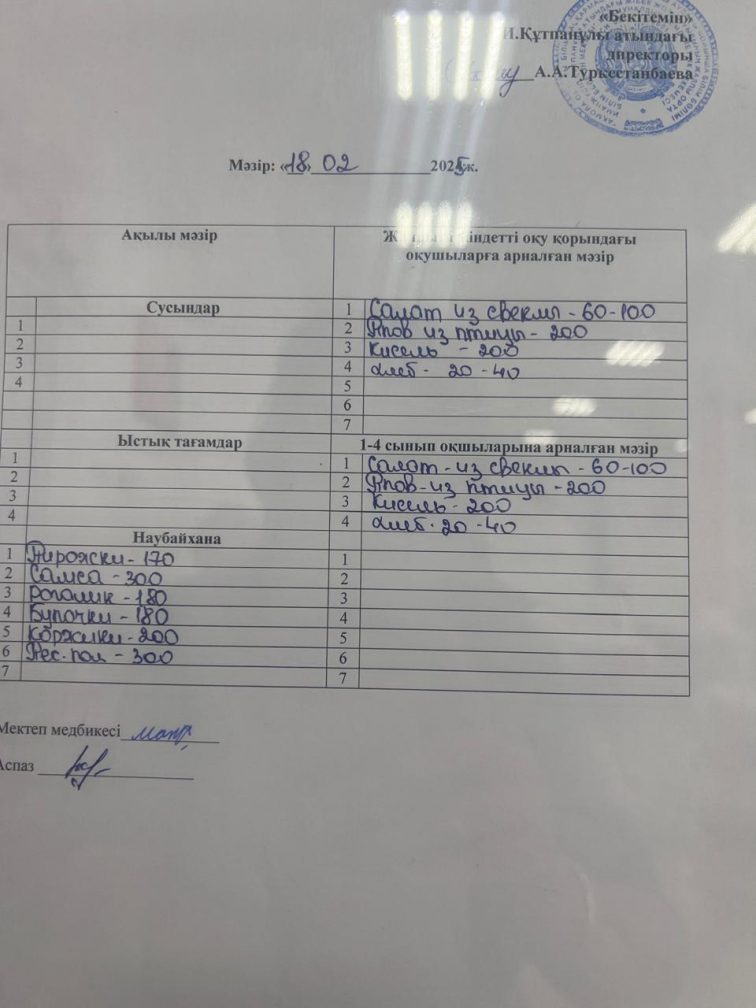 «Бекітемін»
И.Құтпанұлы атындағы
директоры
А.А.Туркестанбаева
Мәзір: «18» 02 2025ж.
Ақылы мәзір
індетті оқу қорындағы
оқушыларға арналған мәзір
Сусындар
1 Салат из свеклы - 60-100
1
2 Плов из птицы - 200
2
3 Кисель - 200
3
4 Хлеб - 20 - 40
4
5
6
7
Ыстық тағамдар
1-4 сынып оқшыларына арналған мәзір
1
1 Салат - из свеклы - 60-100
2
2 Плов - из птицы - 200
3
3 Кисель - 200
4
4 Хлеб - 20 - 40
Наубайхана
1 Пирожки - 170
1
2 Самса - 300
2
3 Рогалик - 180
3
4 Булочки - 180
4
5 Коржики - 200
5
6 Пес. пол - 300
6
7
7
Мектеп медбикесі
Аспаз